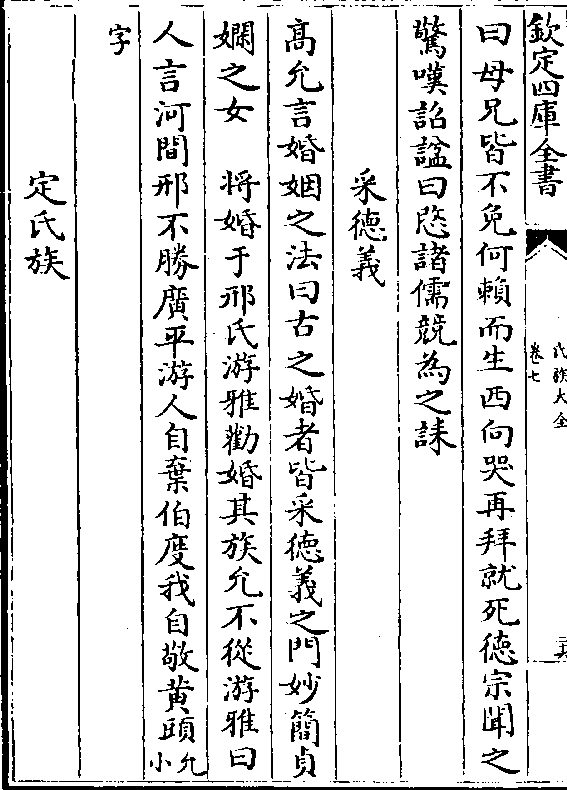 欽定四庫全書
氏族大全
卷七
曰母兄皆不免何賴而生西向哭再拜就死德宗聞之
驚嘆詔諡曰愍諸儒競為之誄
采德義
髙允言婚姻之法曰古之婚者皆采德義之門妙簡貞
嫻之女　將婚于邢氏游雅勸婚其族允不從游雅曰
人言河間邢不勝廣平游人自棄伯度我自敬黄頭允小
字
定氏族